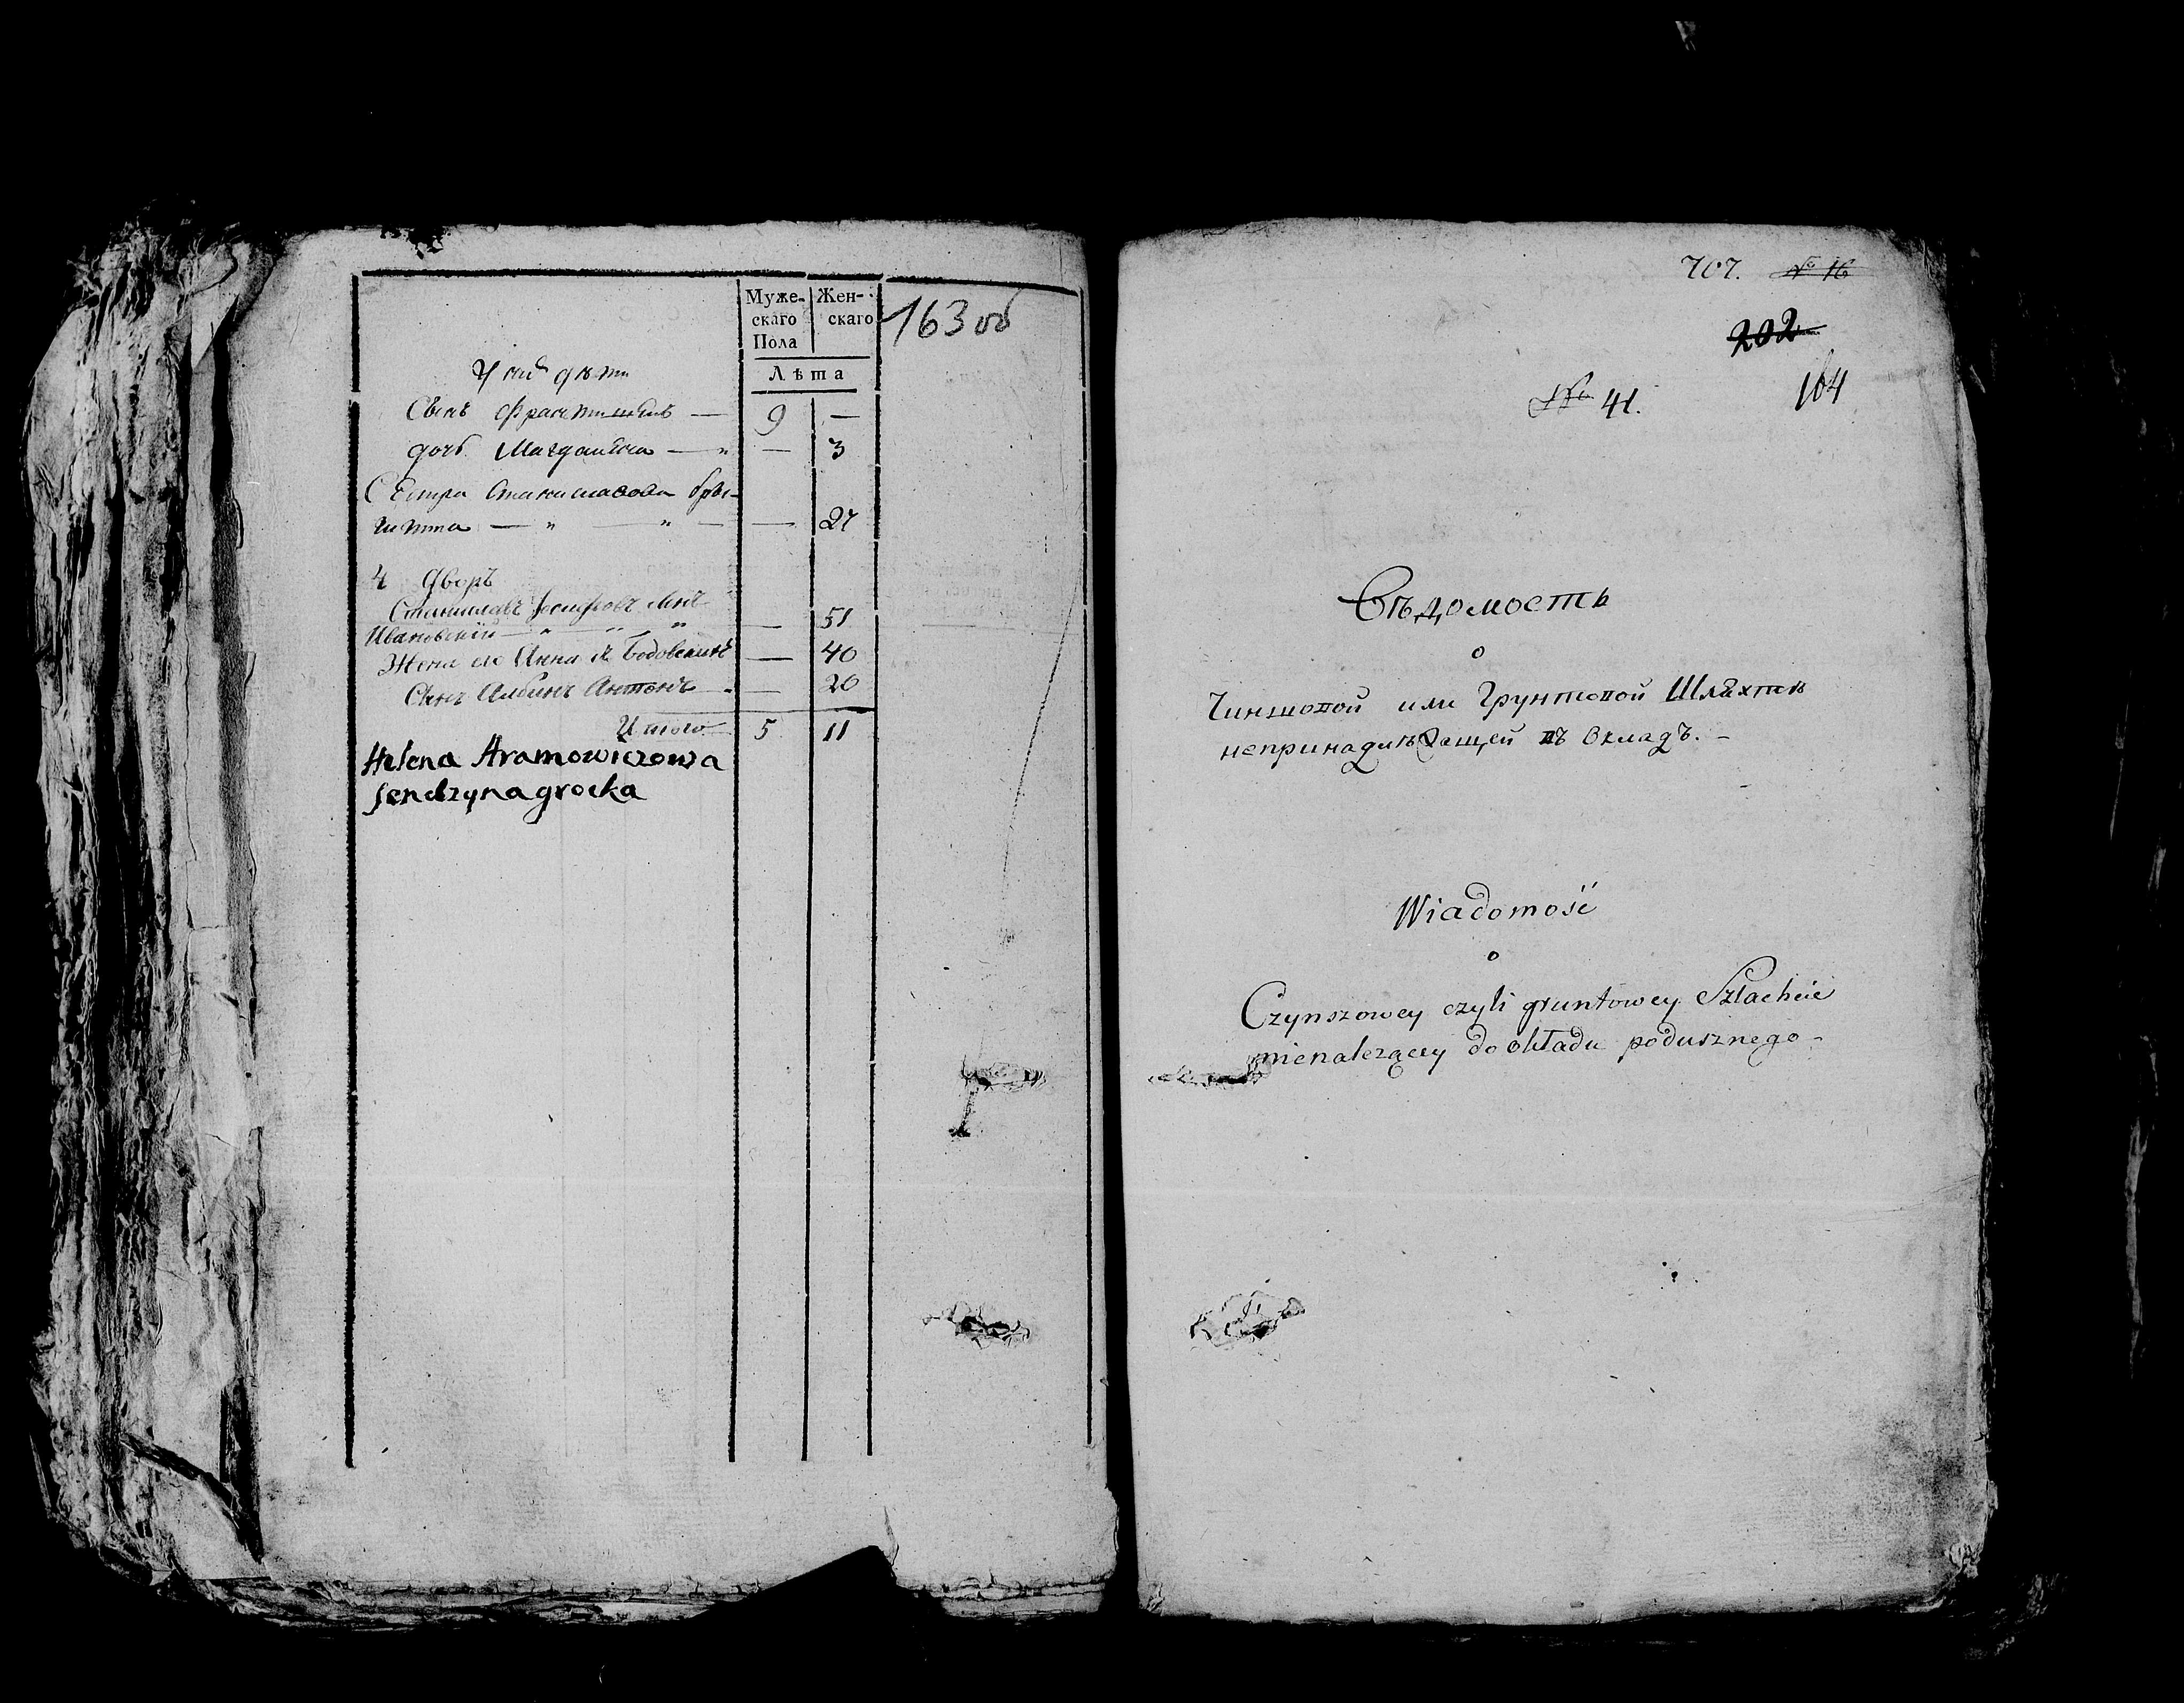 Муже-
скаго
Пола
Жен-
скаго
Лѣта
163 об
У них дѣти
Сынъ Францишекъ — 9 —
дочь Магдалѣна — „ — 3
Сестра Станиславова Бры-
гитта — „ — „ — — 27
4 Дворъ
Станиславъ Іосифовъ сынъ
Ивановский — „ — „ — „ — 51
Жена его Анна з Бодовскихъ — 40
Сынъ Албинъ Антонъ — „ — 20
Итого 5 11
Helena Aramowiczowa
sendzyna grocka
707. № 16
202
№ 41. 164
Вѣдомость
о
Чиншовой или Грунтовой Шляхтѣ
непринадлѣжащей въ Окладъ. –
Wiadomość
o
Czynszowey czyli gruntowey Szlachcie
nienależącey do okładu podusznego –